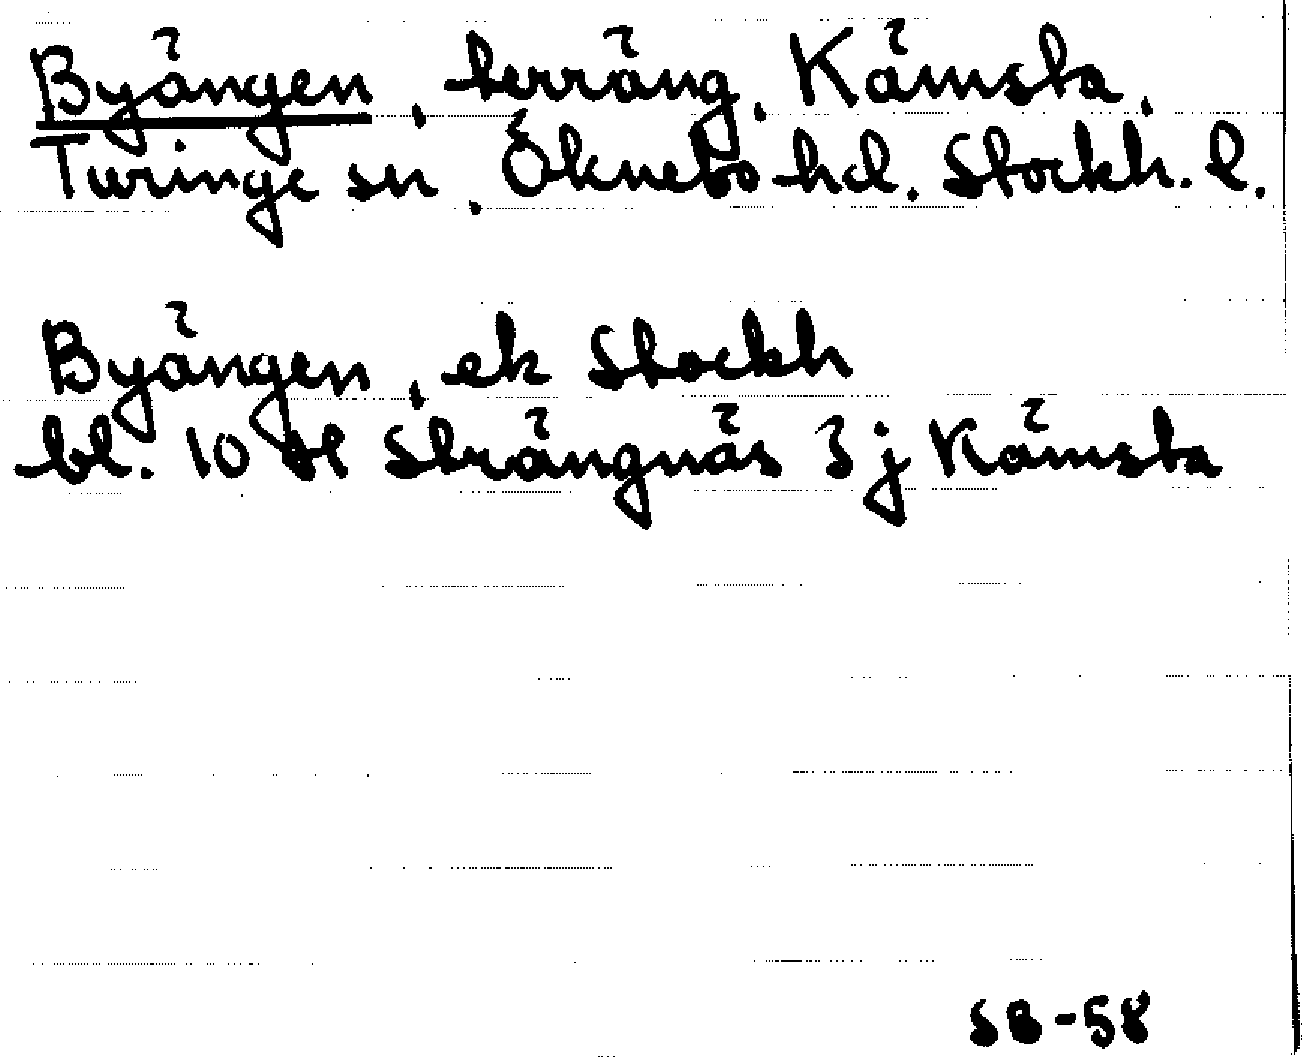 Byängen, terräng, Kämsta,
Turinge sn, Öknebo hd. Stockh. l.
Byängen, ek Stockh
bl. 10 H Strängnäs 3j Kämsta
SB-58